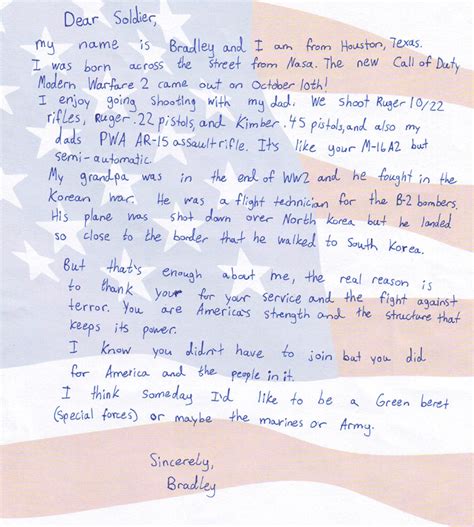 Dear Soldier,
my name is Bradley and I am from Houston, Texas.
I was born across the street from Nasa. The new Call of Duty
Modern Warfare 2 came out on October 10th!
I enjoy going shooting with my dad. We shoot Ruger 10/22
rifles, Ruger .22 pistols, and Kimber .45 pistols, and also my
dads PWA AR-15 assault rifle. It's like your M-16A2 but
semi-automatic.
My grandpa was in the end of WW2 and he fought in the
Korean war. He was a flight technician for the B-2 bombers.
His plane was shot down over North Korea but he landed
so close to the border that he walked to South Korea.
But that's enough about me, the real reason is
to thank your for your service and the fight against
terror. You are America's strength and the structure that
keeps its power.
I know you didn't have to join but you did
for America and the people in it.
I think someday I'd like to be a Green beret
(special forces) or maybe the marines or Army.
Sincerely,
Bradley